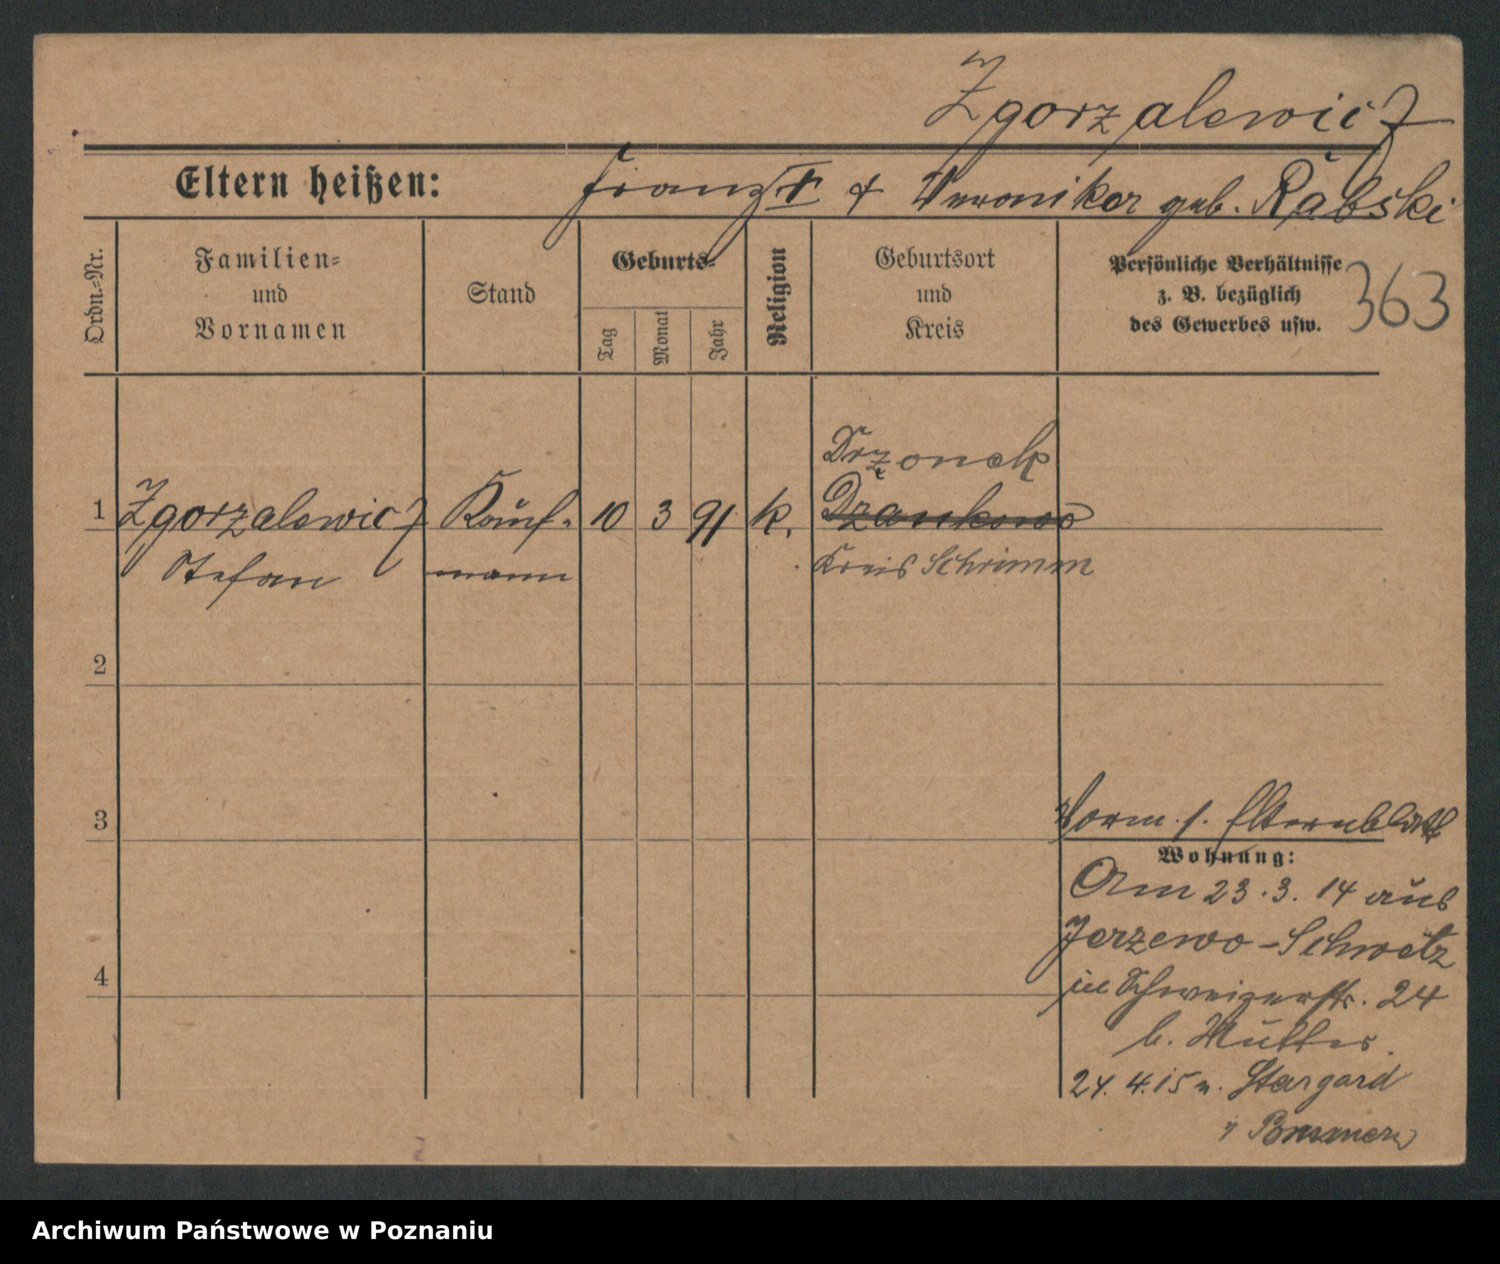 Zgorzalewicz
Eltern heißen: Franz I & Veronika geb. Rabski
Ordn.-Nr.
Familien-
und
Vornamen
Stand
Geburts-
Tag
Monat
Jahr
Religion
Geburtsort
und
Kreis
Persönliche Verhältnisse
z. B. bezüglich
des Gewerbes usw.
363
Drzonek
1 Zgorzalewicz Kauf- 10 3 91 k. Dzankowo
Stefan mann Kreis Schrimm
2
3
Vorm. s. Elternblatt
Wohnung:
Am 23.3.14 aus
Jerzewo-Schwetz
in Schweizerstr. 24
4
b. Mutter.
24.4.15 n. Stargard
Pommern
Archiwum Państwowe w Poznaniu